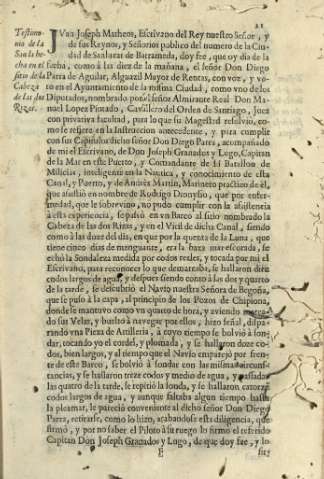 21
Testimonio de la Sonda hecha en el sitio de la Cabeza de las dos Rizas.
JUan Joseph Matheos, Escrivano del Rey nuestro Señor, y
de sus Reynos, y Señorios publico del numero de la Ciudad
de Sanlucar de Barrameda, doy fee, que oy dia de la
fecha, como à las diez de la mañana, el señor Don Diego
Parra de Aguilar, Alguazil Mayor de Rentas, con voz, y voto
en el Ayuntamiento de la misma Ciudad, como vno de los
Diputados, nombrado por el señor Almirante Real Don Manuel
Lopez Pintado, Cavallero del Orden de Santiago, Juez
con privativa facultad, para lo que su Magestad resolviò, como
se refiere en la Instruccion antecedente, y para cumplir
con sus Capitulos dicho señor Don Diego Parra, acompañado
de mi el Escrivano, de Don Joseph Granados y Lugo, Capitan
de la Mar en este Puerto, y Comandante de el Batallon de
Milicias, inteligente en la Nautica, y conocimiento de esta
Canal, y Puerto, y de Andrès Martin, Marinero practico de èl,
que assistiò en nombre de Rodrigo Dionysio, que por enfermedad,
que le sobrevino, no pudo cumplir con la assistencia
à esta experiencia, se passò en vn Barco al sitio nombrado la
Cabeza de las dos Rizas, y en el Viril de dicha Canal, siendo
como à las doze del dia, en que por la quenta de la Luna, que
tiene cinco dias de menguante, era la baxa mar escorada, se
echò la Sondaleza medida por codos reales, y tocada por mi el
Escrivano, para reconocer lo que demarcaba, se hallaron diez
codos largos de agua, y despues siendo como à las dos y quarto
de la tarde, se descubriò el Navio nuestra Señora de Begoña,
que se puso à la capa, al principio de los Pozos de Chipiona,
donde se mantuvo como vn quarto de hora, y aviendo
sus Velas, y buelto à navegar por ellos, hizo señal, disparando
vna Pieza de Artilleria, à cuyo tiempo se bolviò à sondar,
tocando yo el cordel, y plomada, y se hallaron doze codos,
bien largos, y al tiempo que el Navio emparejò por frente
de este Barco, se bolviò à sondar con las mismas circunstancias,
y se hallaron treze codos y medio de agua, y passadas
las quatro de la tarde, se repitiò la sonda, y se hallaron catorze
codos largos de agua, y aunque faltaba algun tiempo hasta
la pleamar, le pareciò conveniente al dicho señor Don Diego
Parra, retirarse, como lo hizo, acabandose esta diligencia, que
firmò, y por no saber el Piloto à su ruego lo firmò el referido
Capitan Don Joseph Granados y Lugo, de que doy fee, y lo